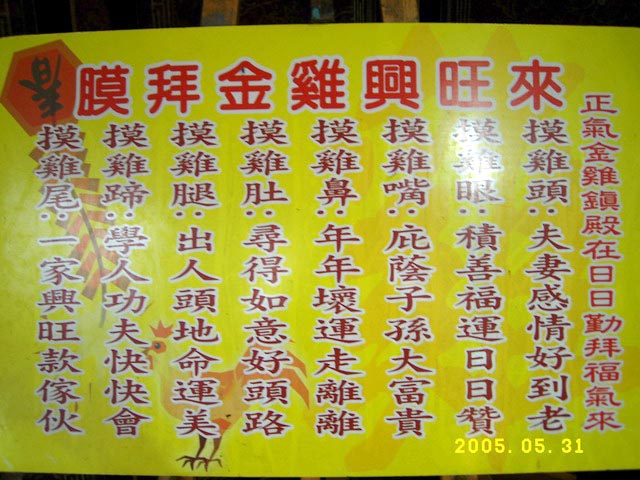 膜拜金雞興旺來
正氣金雞鎮殿在日日勤拜福氣來
摸雞頭：夫妻感情好到老
摸雞眼：積善福運日日贊
摸雞嘴：庇蔭子孫大富貴
摸雞鼻：年年壞運走離離
摸雞肚：尋得如意好頭路
摸雞腿：出人頭地命運美
摸雞蹄：學人功夫快快會
摸雞尾：一家興旺款傢伙
春
2005.05.31